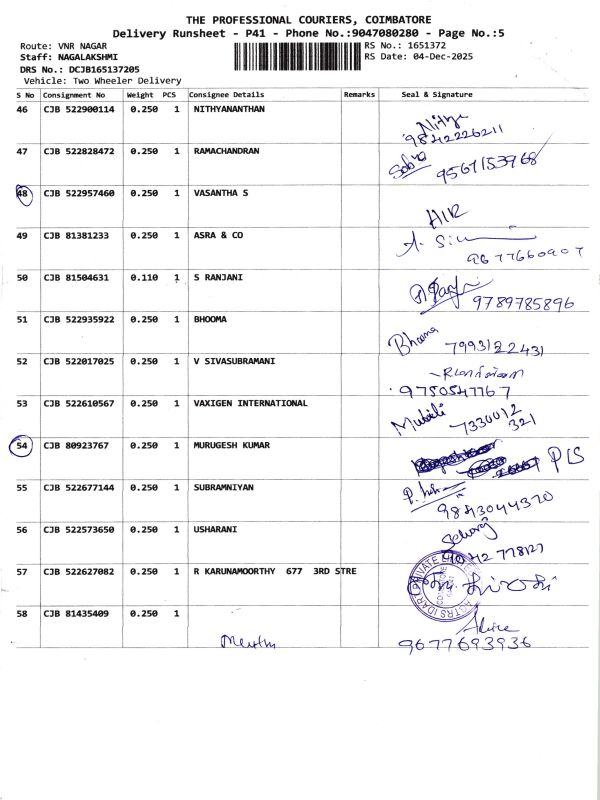 THE PROFESSIONAL COURIERS, COIMBATORE
Delivery Runsheet - P41 - Phone No.:9047080280 - Page No.:5
Route: VNR NAGAR RS No.: 1651372
Staff: NAGALAKSHMI RS Date: 04-Dec-2025
DRS No.: DCJB165137205
Vehicle: Two Wheeler Delivery
S No Consignment No Weight PCS Consignee Details Remarks Seal & Signature
46 CJB 522900114 0.250 1 NITHYANANTHAN
9842226211
47 CJB 522828472 0.250 1 RAMACHANDRAN
9567153968
48 CJB 522957460 0.250 1 VASANTHA S
49 CJB 81381233 0.250 1 ASRA & CO
9677660907
50 CJB 81504631 0.110 1 S RANJANI
9789785896
51 CJB 522935922 0.250 1 BHOOMA
Bhooma 7993122431
52 CJB 522017025 0.250 1 V SIVASUBRAMANI
9750547767
53 CJB 522610567 0.250 1 VAXIGEN INTERNATIONAL
7330012
321
54 CJB 80923767 0.250 1 MURUGESH KUMAR
55 CJB 522677144 0.250 1 SUBRAMNIYAN
9843044370
56 CJB 522573650 0.250 1 USHARANI
57 CJB 522627082 0.250 1 R KARUNAMOORTHY 677 3RD STRE
58 CJB 81435409 0.250 1
9677693936